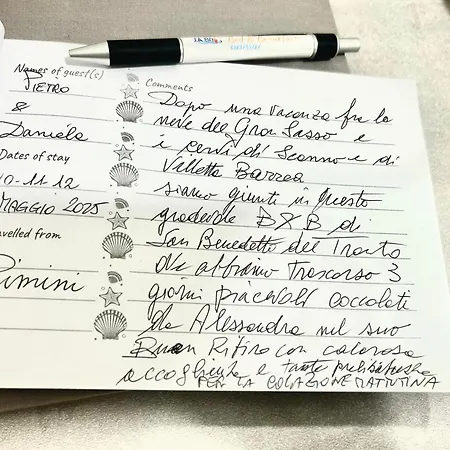 Names of guest(s)
PIETRO
&
Daniela
Dates of stay
10-11-12
MAGGIO 2025
avelled from
Rimini
Comments
Dopo una vacanza fra la
neve del Gran Sasso e
i cervi di Scanno e di
Villetta Barrea
siamo giunti in questo
gradevole B&B di
San Benedetto del Tronto
ove abbiamo trascorso 3
giorni piacevoli coccolati
da Alessandra nel suo
Buen Ritiro con calorosa
accoglienza e tante prelibatezze
PER LA COLAZIONE MATTUTINA